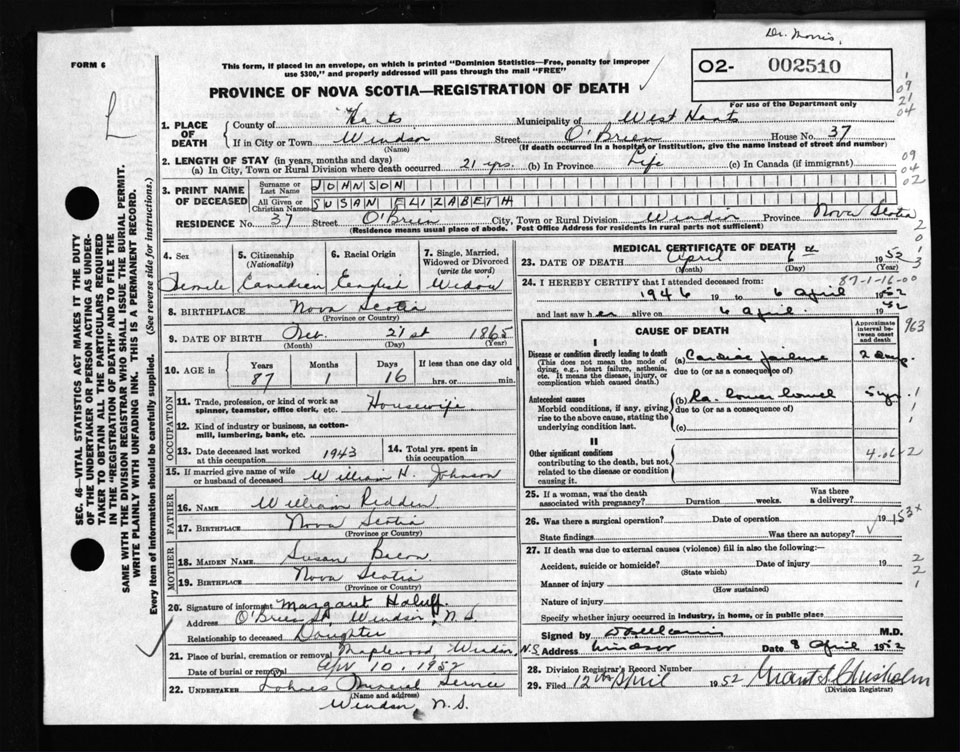 Dr. Morris.
FORM 6
This form, if placed in an envelope, on which is printed "Dominion Statistics—Free, penalty for improper
use $300," and properly addressed will pass through the mail "FREE"
O2- 002510
For use of the Department only
PROVINCE OF NOVA SCOTIA—REGISTRATION OF DEATH
1. PLACE OF DEATH
County of Hants Municipality of West Hants
If in City or Town Windsor Street O'Brien House No. 37
(Name) (If death occurred in a hospital or institution, give the name instead of street and number)
2. LENGTH OF STAY (in years, months and days)
(a) In City, Town or Rural Division where death occurred 21 yrs. (b) In Province Life (c) In Canada (if immigrant)
3. PRINT NAME OF DECEASED
Surname or Last Name JOHNSON
All Given or Christian Names SUSAN ELIZABETH
RESIDENCE No. 37 Street O'Brien City, Town or Rural Division Windsor Province Nova Scotia
(Residence means usual place of abode. Post Office Address for residents in rural parts not sufficient)
4. Sex 5. Citizenship (Nationality) 6. Racial Origin 7. Single, Married, Widowed or Divorced (write the word)
Female Canadian English Widow
8. BIRTHPLACE Nova Scotia
(Province or Country)
9. DATE OF BIRTH 21st 1865
(Month) (Day) (Year)
10. AGE in Years Months Days If less than one day old
87 1 16 hrs. or min.
OCCUPATION
11. Trade, profession, or kind of work as spinner, teamster, office clerk, etc. Housewife
12. Kind of industry or business, as cotton-mill, lumbering, bank, etc.
13. Date deceased last worked at this occupation 1943 14. Total yrs. spent in this occupation
15. If married give name of wife or husband of deceased William H. Johnson
FATHER
16. NAME William Redden
17. BIRTHPLACE Nova Scotia
(Province or Country)
MOTHER
18. MAIDEN NAME Susan
19. BIRTHPLACE Nova Scotia
(Province or Country)
20. Signature of informant Margaret
Address O'Brien St. Windsor, N.S.
Relationship to deceased Daughter
21. Place of burial, cremation or removal Maplewood, Windsor, N.S.
Date of burial or removal Apr 10, 1952
22. UNDERTAKER Lohnes Funeral Service
(Name and address)
Windsor, N.S.
MEDICAL CERTIFICATE OF DEATH
23. DATE OF DEATH April 6th 1952
(Month) (Day) (Year)
87-1-16-00
24. I HEREBY CERTIFY that I attended deceased from:
1946 19 to 6 April 1952
and last saw her alive on 6 April. 1952
CAUSE OF DEATH
Approximate interval between onset and death
I
Disease or condition directly leading to death (a) Cardiac failure 2 days
(This does not mean the mode of dying, e.g., heart failure, asthenia, etc. It means the disease, injury, or complication which caused death.)
due to (or as a consequence of)
Antecedent causes (b) Ca. lower bowel 5 yrs.
Morbid conditions, if any, giving rise to the above cause, stating the underlying condition last.
due to (or as a consequence of)
(c)
II
Other significant conditions
contributing to the death, but not related to the disease or condition causing it.
4-06-2
25. If a woman, was the death associated with pregnancy? Duration weeks. Was there a delivery?
26. Was there a surgical operation? Date of operation 19
153x
State findings Was there an autopsy?
27. If death was due to external causes (violence) fill in also the following:
Accident, suicide or homicide? Date of injury 19
(State which)
Manner of injury
(How sustained)
Nature of injury
Specify whether injury occurred in industry, in home, or in public place
Signed by M.D.
Address Windsor Date 8 April 1952
28. Division Registrar's Record Number
29. Filed 12th April 1952 Grant S. Chisholm
(Division Registrar)
SEC. 46—VITAL STATISTICS ACT MAKES IT THE DUTY
OF THE UNDERTAKER OR PERSON ACTING AS UNDER-
TAKER TO OBTAIN ALL THE PARTICULARS REQUIRED
IN THE "REGISTRATION OF DEATH" AND TO FILE THE
SAME WITH THE DIVISION REGISTRAR WHO SHALL ISSUE THE BURIAL PERMIT.
WRITE PLAINLY WITH UNFADING INK. THIS IS A PERMANENT RECORD.
Every item of information should be carefully supplied. (See reverse side for instructions.)